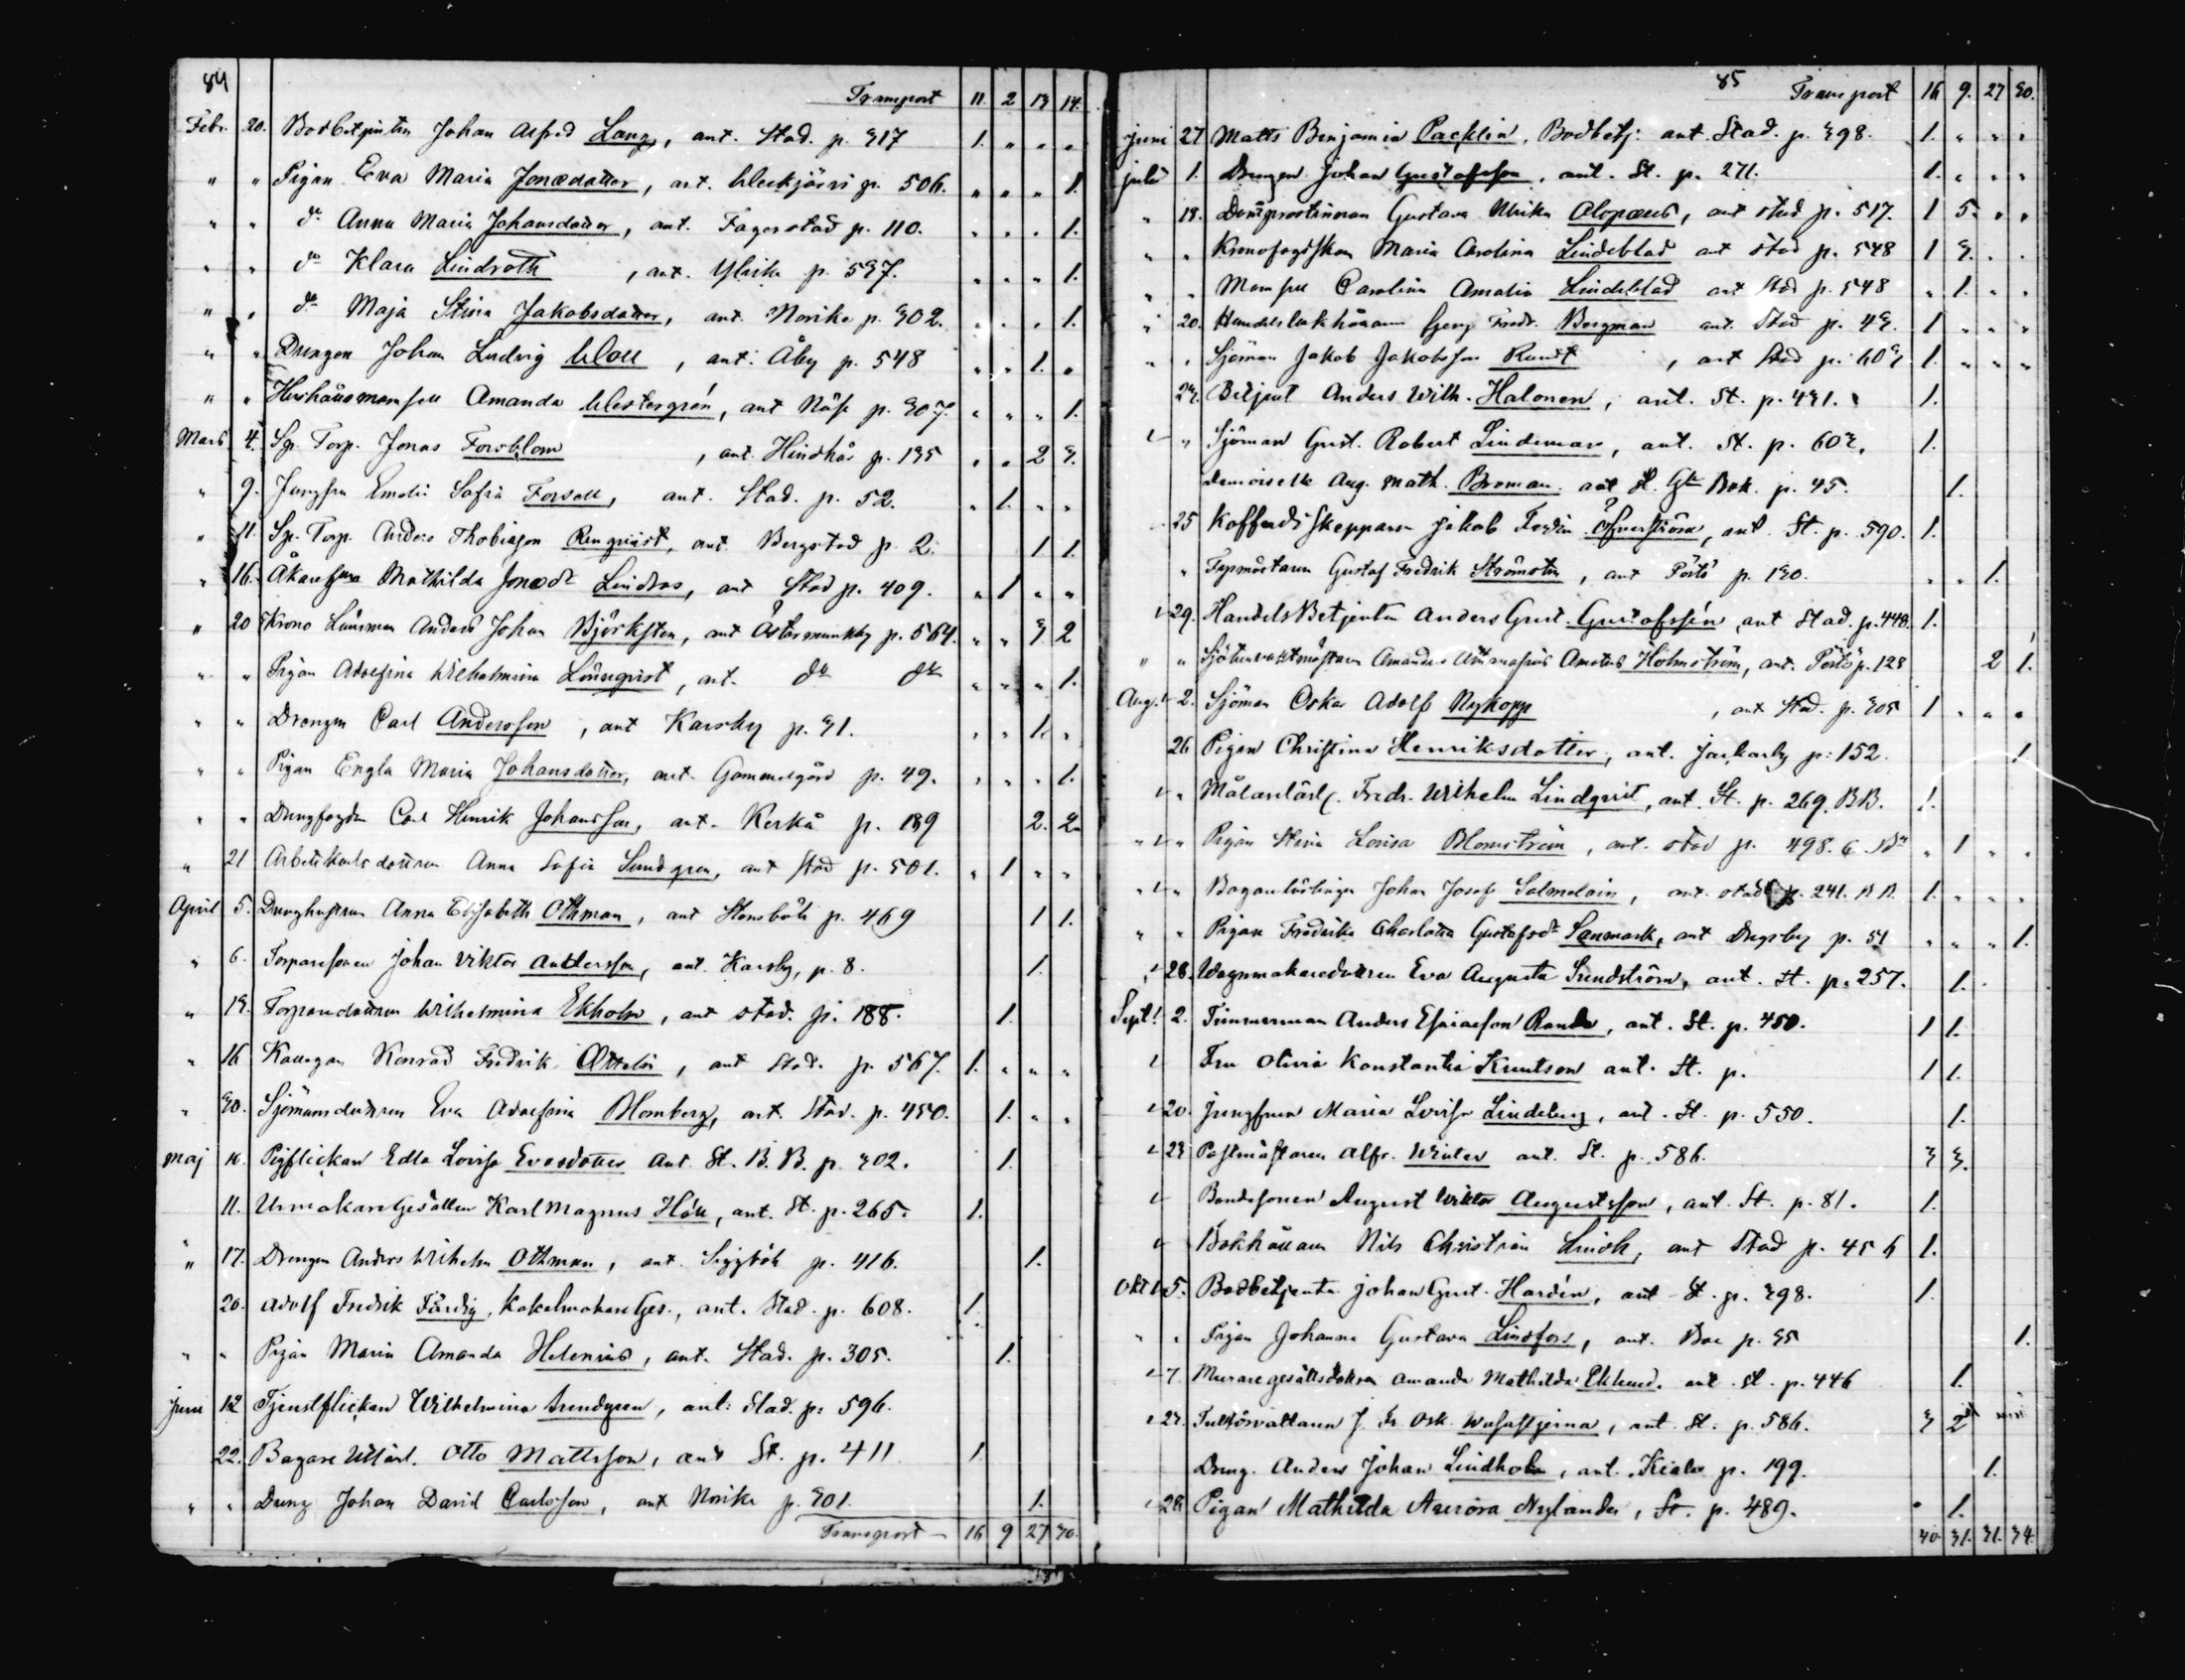 84
Transport 11. 2 13 14.
Febr. 20. Bodbetjenten Johan Alfred Lang, ant. Stad. p. 317 1. " " "
" " Pigan Eva Maria Jonasdotter, ant. p. 506. " " " 1.
" " do Anna Maria Johansdotter, ant. Fagerstad p. 110. " " " 1.
" " do Klara Lindroth, ant. Ylike p. 537. " " " 1.
" " do Maja Stina Jakobsdotter, ant. Norike p. 302. " " " 1.
" " Drengen Johan Ludvig, ant. Åby p. 548 " " 1. "
" " Hushållsmamsell Amanda Westergrén, ant Näse p. 307. " " " 1.
Mars 4. Sp. Torp. Jonas Forsblom, ant. Hindhår p. 135 " " 2 3.
" 9. Jungfru Emelie Sofia Forsell, ant. Stad. p. 52. " 1. " "
" 11. Sp. Torp. Anders Thobiason Renqvist, ant. Bergstad p. 2. 1 1.
" 16. Mathilda Jonasdr Lindros, ant Stad p. 409. " 1 " "
" 20 Krono Länsman Anders Johan Björksten, ant Östermunkby p. 564. " " 3 2
" " Pigan Adolfina Wilhelmina Lönnqvist, ant. do do " " " 1.
" " Drengen Carl Andersson, ant Karsby p. 31. " " 1. "
" " Pigan Engla Maria Johansdotter, ant. Gammelgård p. 49. " " " 1.
" " Drengfogden Carl Henrik Johansson, ant. Kerkå p. 189 2. 2.
" 21 Arbetskarlsdottren Anna Sofia Sundgren, ant Stad p. 501. " 1 " "
April 5. Drenghustrun Anna Elisabeth Othman, ant Stensböle p. 469 1 1.
" 6. Torparesonen Johan Viktor Andersson, ant. Karsby, p. 8. 1.
" 13. Torparedottren Wilhelmina Ekholm, ant stad. p. 188. 1.
" 16 Konrad Fredrik, ant Stad. p. 567. 1. " " "
" 30. Sjömansdottren Eva Adolfina Blomberg, ant. Stad. p. 450. 1. " "
Maj 10. Pigflickan Edla Lovisa Evasdotter Ant. St. B. B. p. 302. 1.
" 11. Urmakare Gesällen Karl Magnus Höök, ant. St. p. 265. 1.
" 17. Drengen Anders Wilhelm Othman, ant. Siggböle p. 416. 1.
20. Adolf Fredrik Färdig, Kakelmakare Ges., ant. Stad. p. 608. 1.
" " Pigan Maria Amanda Helenius, ant. Stad. p. 305. 1.
Juni 12 Tjenstflickan Wilhelmina Sundgren, ant: Stad. p: 596.
22. Bagare Otto Mattsson, ant St. p. 411 1.
" " Dreng Johan David Carlsson, ant Norike p. 301. 1.
Transport 16 9 27 30.
85
Transport 16 9. 27 30.
Juni 27 Matts Benjamin Packlin, Bodbetj: ant. Stad. p. 398. 1. " " "
Juli 1. Drengen Johan Gustafsson, ant. St. p. 271. 1. " " "
" 18. Domprostinnan Gustava Ulrika Alopaeus, ant stad p. 517. 1 5. " "
" " Kronofogdskan Maria Carolina Lindeblad ant stad p. 548 1 3. " "
" " Mamsell Carolina Amalia Lindeblad ant Stad p. 548 " 1. " "
" 20. Handelsbokhållaren Fredr. Bergman ant. Stad p. 43. 1 " " "
" " Sjöman Jakob Jakobsson, ant Stad p. 603 1. " " "
23. Betjent Anders Wilh. Halonen, ant. St. p. 431. 1.
" Sjöman Gust. Robert Lindeman, ant. St. p. 603. 1.
Demoiselle Aug. Math. Broman. ant St. Gla Bok. p. 45. 1.
25 Koffardi Skepparen Jakob Öfverström, ant. St. p. 590. 1.
" Gustaf Fredrik Strömsten, ant Pörtö p. 130. " " 1.
29. Handels Betjenten Anders Gust. Gustafssén, ant Stad. p. 440. 1.
" " Holmström, ant. Pörtö p. 128 2 1.
Aug. 2. Sjöman Oskar Adolf Nykopp, ant Stad. p. 305 1 " " "
26 Pigan Christina Henriksdotter, ant. Jackarby p: 152. 1
" Målarelärl. Fredr. Wilhelm Lindqvist, ant. St. p. 269. B.B. 1.
" " Pigan Stina Lovisa Blomström, ant. stad p. 498. G. Bn " 1 " "
" " Bagarelärlingen Johan Josef Salmelain, ant. stad p. 241. B B. 1. " " "
" " Pigan Fredrika Charlotta Gustafsdr Sanmark, ant Dregsby p. 51 " " " 1.
28. Wagnmakaredottren Eva Augusta Sundström, ant. St. p. 257. 1.
Sept. 2. Timmerman Anders Esaiasson, ant. St. p. 450. 1 1.
Fru Olivia Konstantia Knutson ant. St. p. 1 1.
20. Jungfrun Maria Lovisa Lindeberg, ant. St. p. 550. 1.
23 Postmästaren Alfr. Winter ant. St. p. 586. 3 3.
Bondesonen August Wiktor Augustsson, ant. St. p. 81. 1.
Bokhållaren Nils Christian, ant Stad p. 456 1.
Okt 5. Bodbetjenten Johan Gust. Hardén, ant St. p. 398. 1.
" " Pigan Johanna Gustava Lindfors, ant. Boe p. 35 1.
7. Muraregesällsdottren Amanda Mathilda Eklund, ant. St. p. 446 1.
23. Tullförvaltaren J. Fr. Osk. Wasastjerna, ant. St: p. 586. 3 2
Dreng. Anders Johan Lindholm, ant. Kiala p. 199. 1.
28. Pigan Mathilda Aurora Nylander, St. p. 489. 1.
40 31. 31. 34.